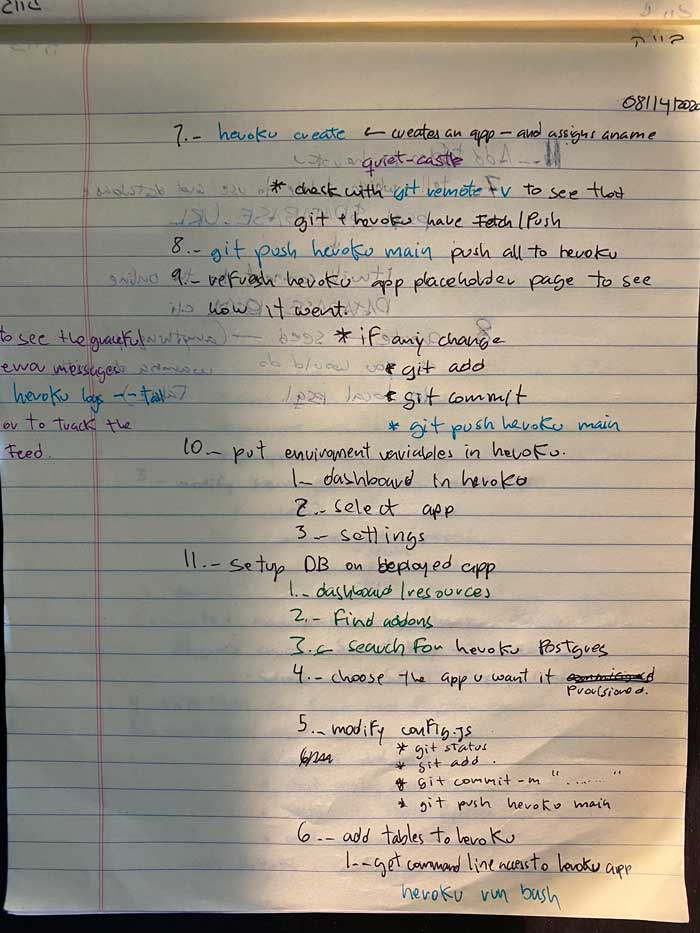 בייה
08/14/202
7.- heroku create ← creates an app - and assigns aname
quiet-castle
* check with git remote -v to see that
git & heroku have Fetch/Push
8.- git push heroku main push all to heroku
9.- refresh heroku app placeholder page to see
how it went.
* if any change
* git add
* git commit
* git push heroku main
to see the graceful
error messages
heroku logs --tail
or to track the
feed.
10.- put enviroment variables in heroku.
1- dashboard in heroku
2.- select app
3.- settings
11.- setup DB on deployed app
1.- dashboard/resources
2.- Find addons
3.- search For heroku Postgres
4.- choose the app u want it
Provisioned.
5.- modify config.js
* git status
* git add .
* git commit -m "......."
* git push heroku main
6.- add tables to heroku
1.- get command line access to heroku app
heroku run bash